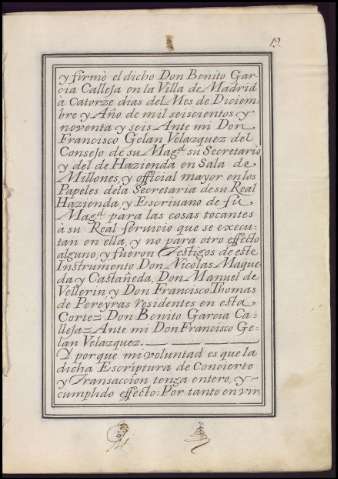 13.
y firmò el dicho Don Benito Gar-
cia Calleja en la Villa de Madrid
à Catorze dias del Mes de Diciem-
bre y Año de mil seiscientos y
noventa y seis Ante mi Don
Francisco Gelan Velazquez del
Consejo de su Mag.d su Secretario
y del de Hazienda en Sala de
Millones, y official mayor en los
Papeles dela Secretaria desu Real
Hazienda, y Escriuano de su
Mag.d para las cosas tocantes
à su Real seruicio que se execu-
tan en ella, y no para otro effecto
alguno, y fueron testigos de este
Instrumento Don Nicolas Maque-
da y Castañeda, Don Manuel de
Vellerin, y Don Francisco Thomas
de Pereyras residentes en esta
Corte= Don Benito Garcia Ca-
lleja= Ante mi Don Francisco Ge-
lan Velazquez.
Y porque mi voluntad es que la
dicha Escriptura de Concierto
y Transaccion tenga entero, y
cumplido effecto: Por tanto en vir